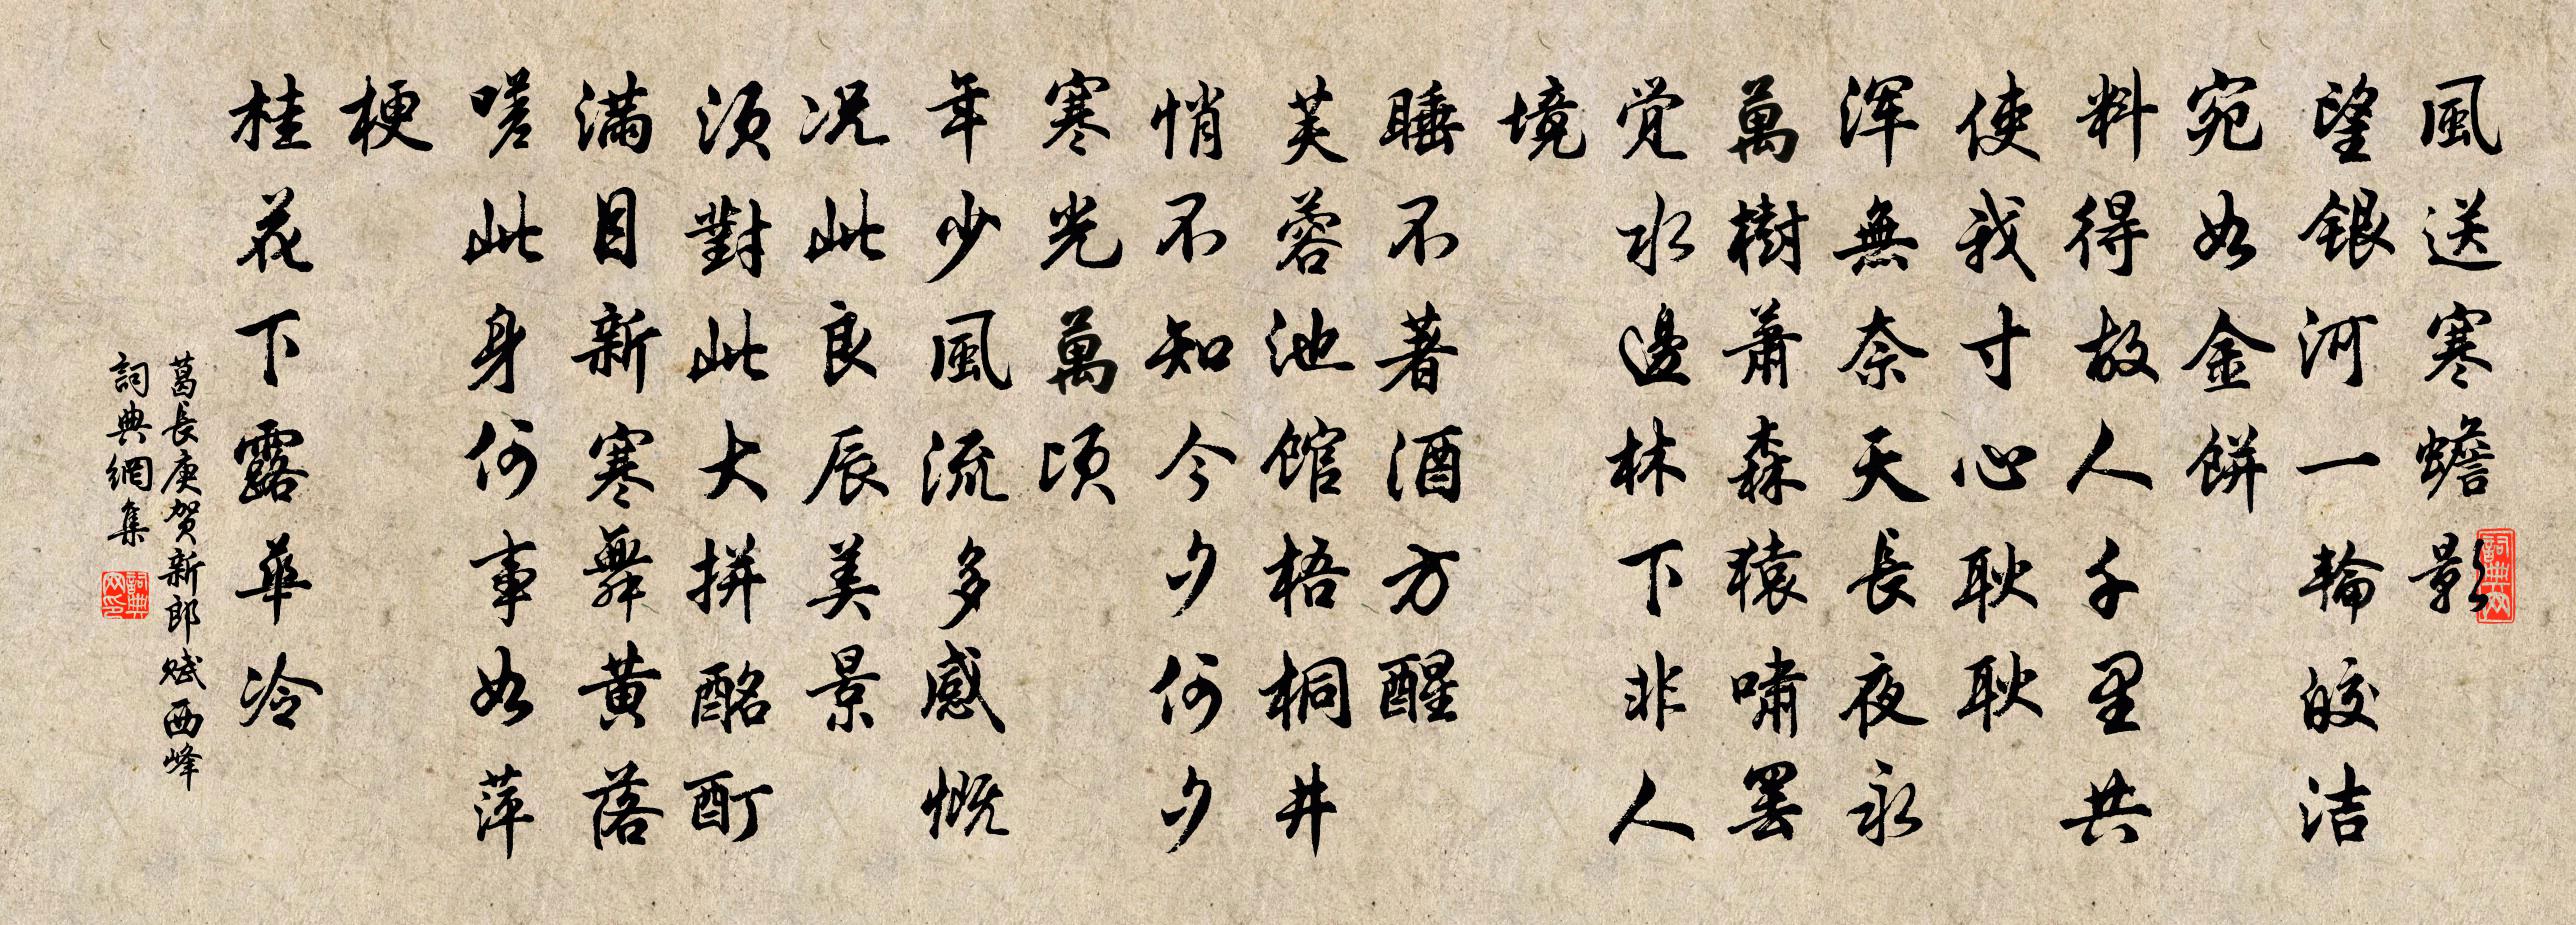 風送寒蟾影
望銀河一輪皎洁
宛如金餅
料得故人千里共
使我寸心耿耿
浑無奈天長夜永
萬樹萧森猿啸罢
觉水邊林下非人
境
睡不著酒方醒
芙蓉池馆梧桐井
悄不知今夕何夕
寒光萬顷
年少風流多感慨
况此良辰美景
须對此大拼酩酊
满目新寒舞黄落
嗟此身何事如萍
梗
桂花下露華冷
葛長庚贺新郎赋西峰
詞典網集
詞典网
詞典网印